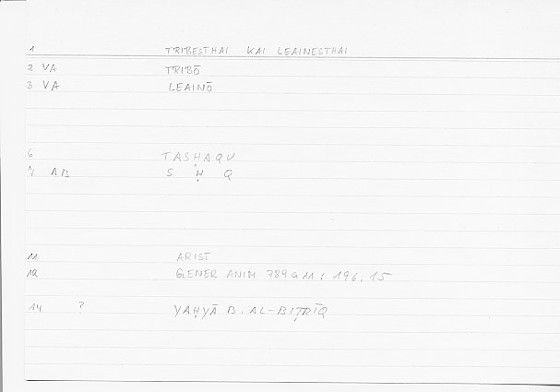 1 TRIBESTHAI KAI LEAINESTHAI
2 VA TRIBŌ
3 VA LEAINŌ
6 TASḤAQU
7 AR S Ḥ Q
11 ARIST
12 GENER ANIM 789 a 11 : 196, 15
14 ? YAḤYĀ B. AL-BIṬRĪQ